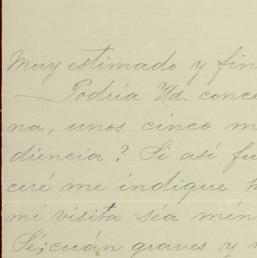 Muy estimado y fin
— Podría Ud. conce
na, unos cinco m
diencia? Si así fu
ceré me indique h
mi visita séa mén
Sé; cuán graves y